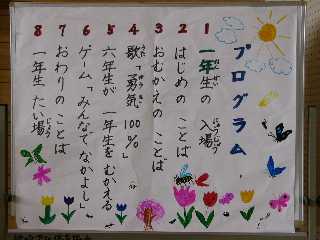 プログラム
1 一年生の入場 にゅうじょう
2 はじめのことば
3 おむかえのことば
4 歌「勇気100%」 うた ゆうき
5 六年生が一年生をむかえる
6 ゲーム「みんなでなかよし」
7 おわりのことば
8 一年生たい場 じょう